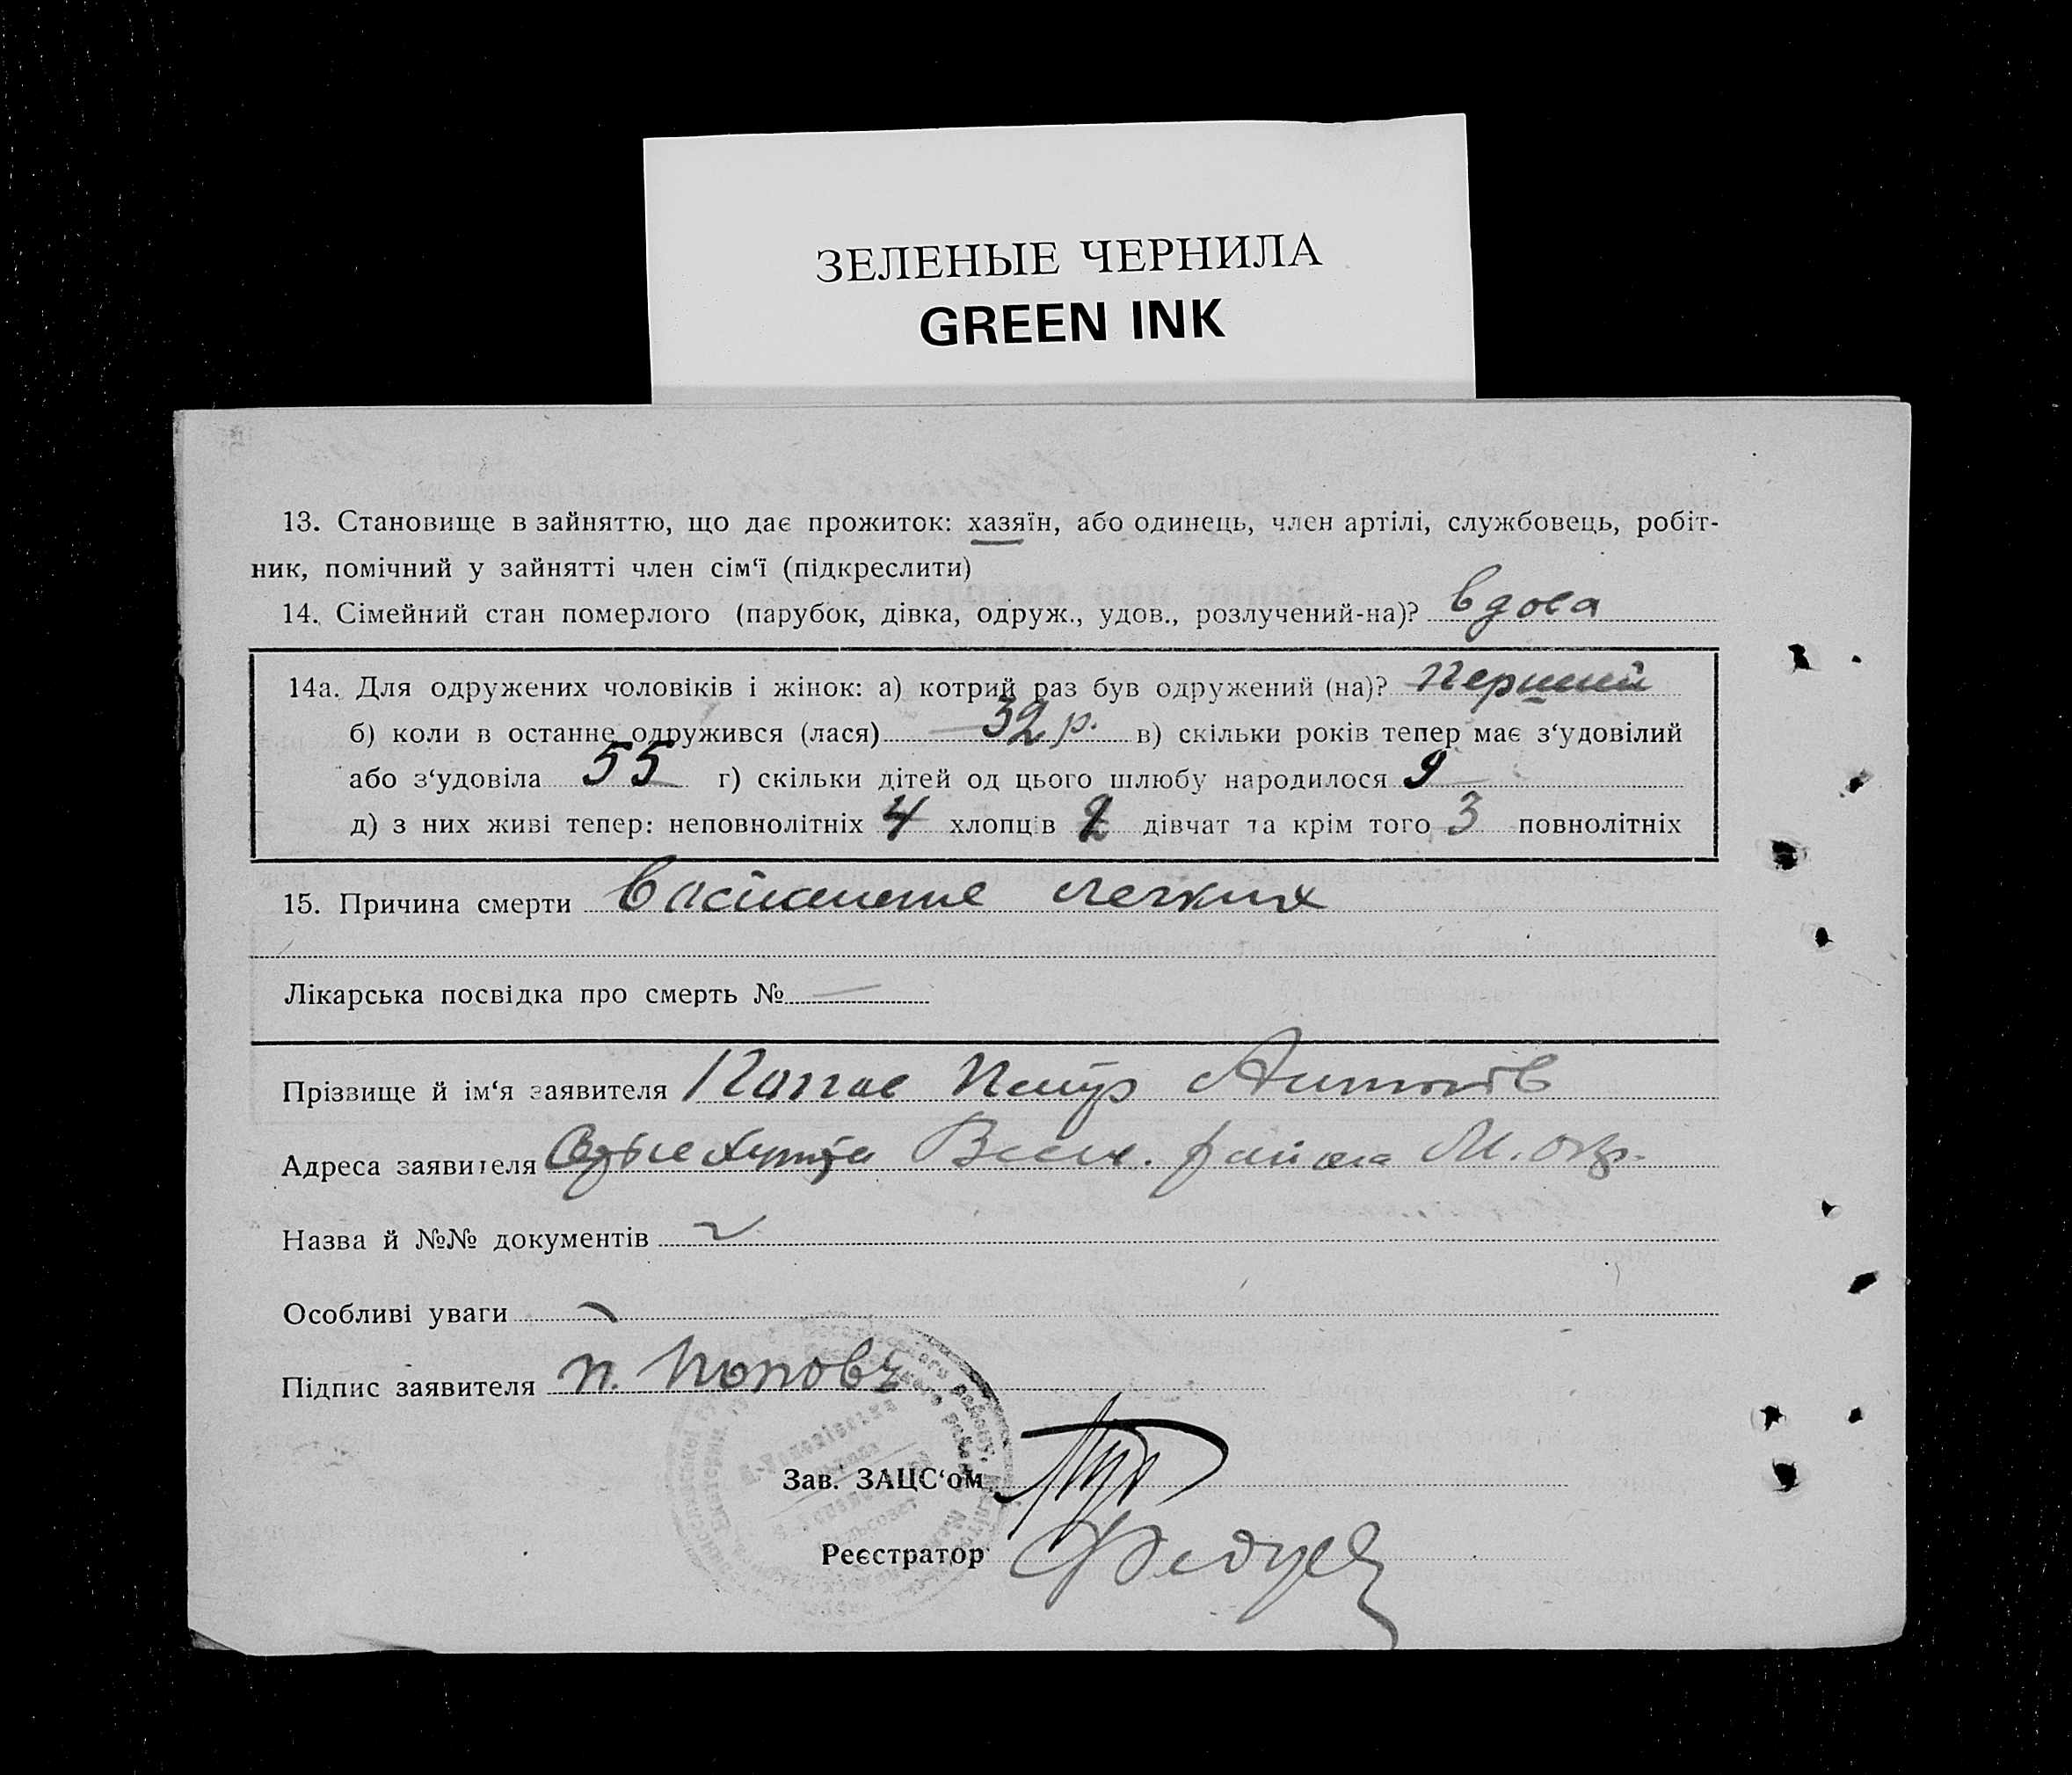 ЗЕЛЕНЫЕ ЧЕРНИЛА
GREEN INK
13. Становище в зайняттю, що дає прожиток: хазяїн, або одинець, член артілі, службовець, робіт-
ник, помічний у зайнятті член сім‘ї (підкреслити)
14. Сімейний стан померлого (парубок, дівка, одруж., удов., розлучений-на)? вдова
14а. Для одружених чоловіків і жінок: а) котрий раз був одружений (на)? Перший
б) коли в останнє одружився (лася) 32 р. в) скільки років тепер має з‘удовілий
або з‘удовіла 55 г) скільки дітей од цього шлюбу народилося 9
д) з них живі тепер: неповнолітніх 4 хлопців 2 дівчат та крім того 3 повнолітніх
15. Причина смерти легких
Лікарська посвідка про смерть № —
Прізвище й ім‘я заявителя Петр
Адреса заявителя района М. окр.
Назва й №№ документів
Особливі уваги
Підпис заявителя П. Поповъ
Зав. ЗАЦС‘ом
Реєстратор